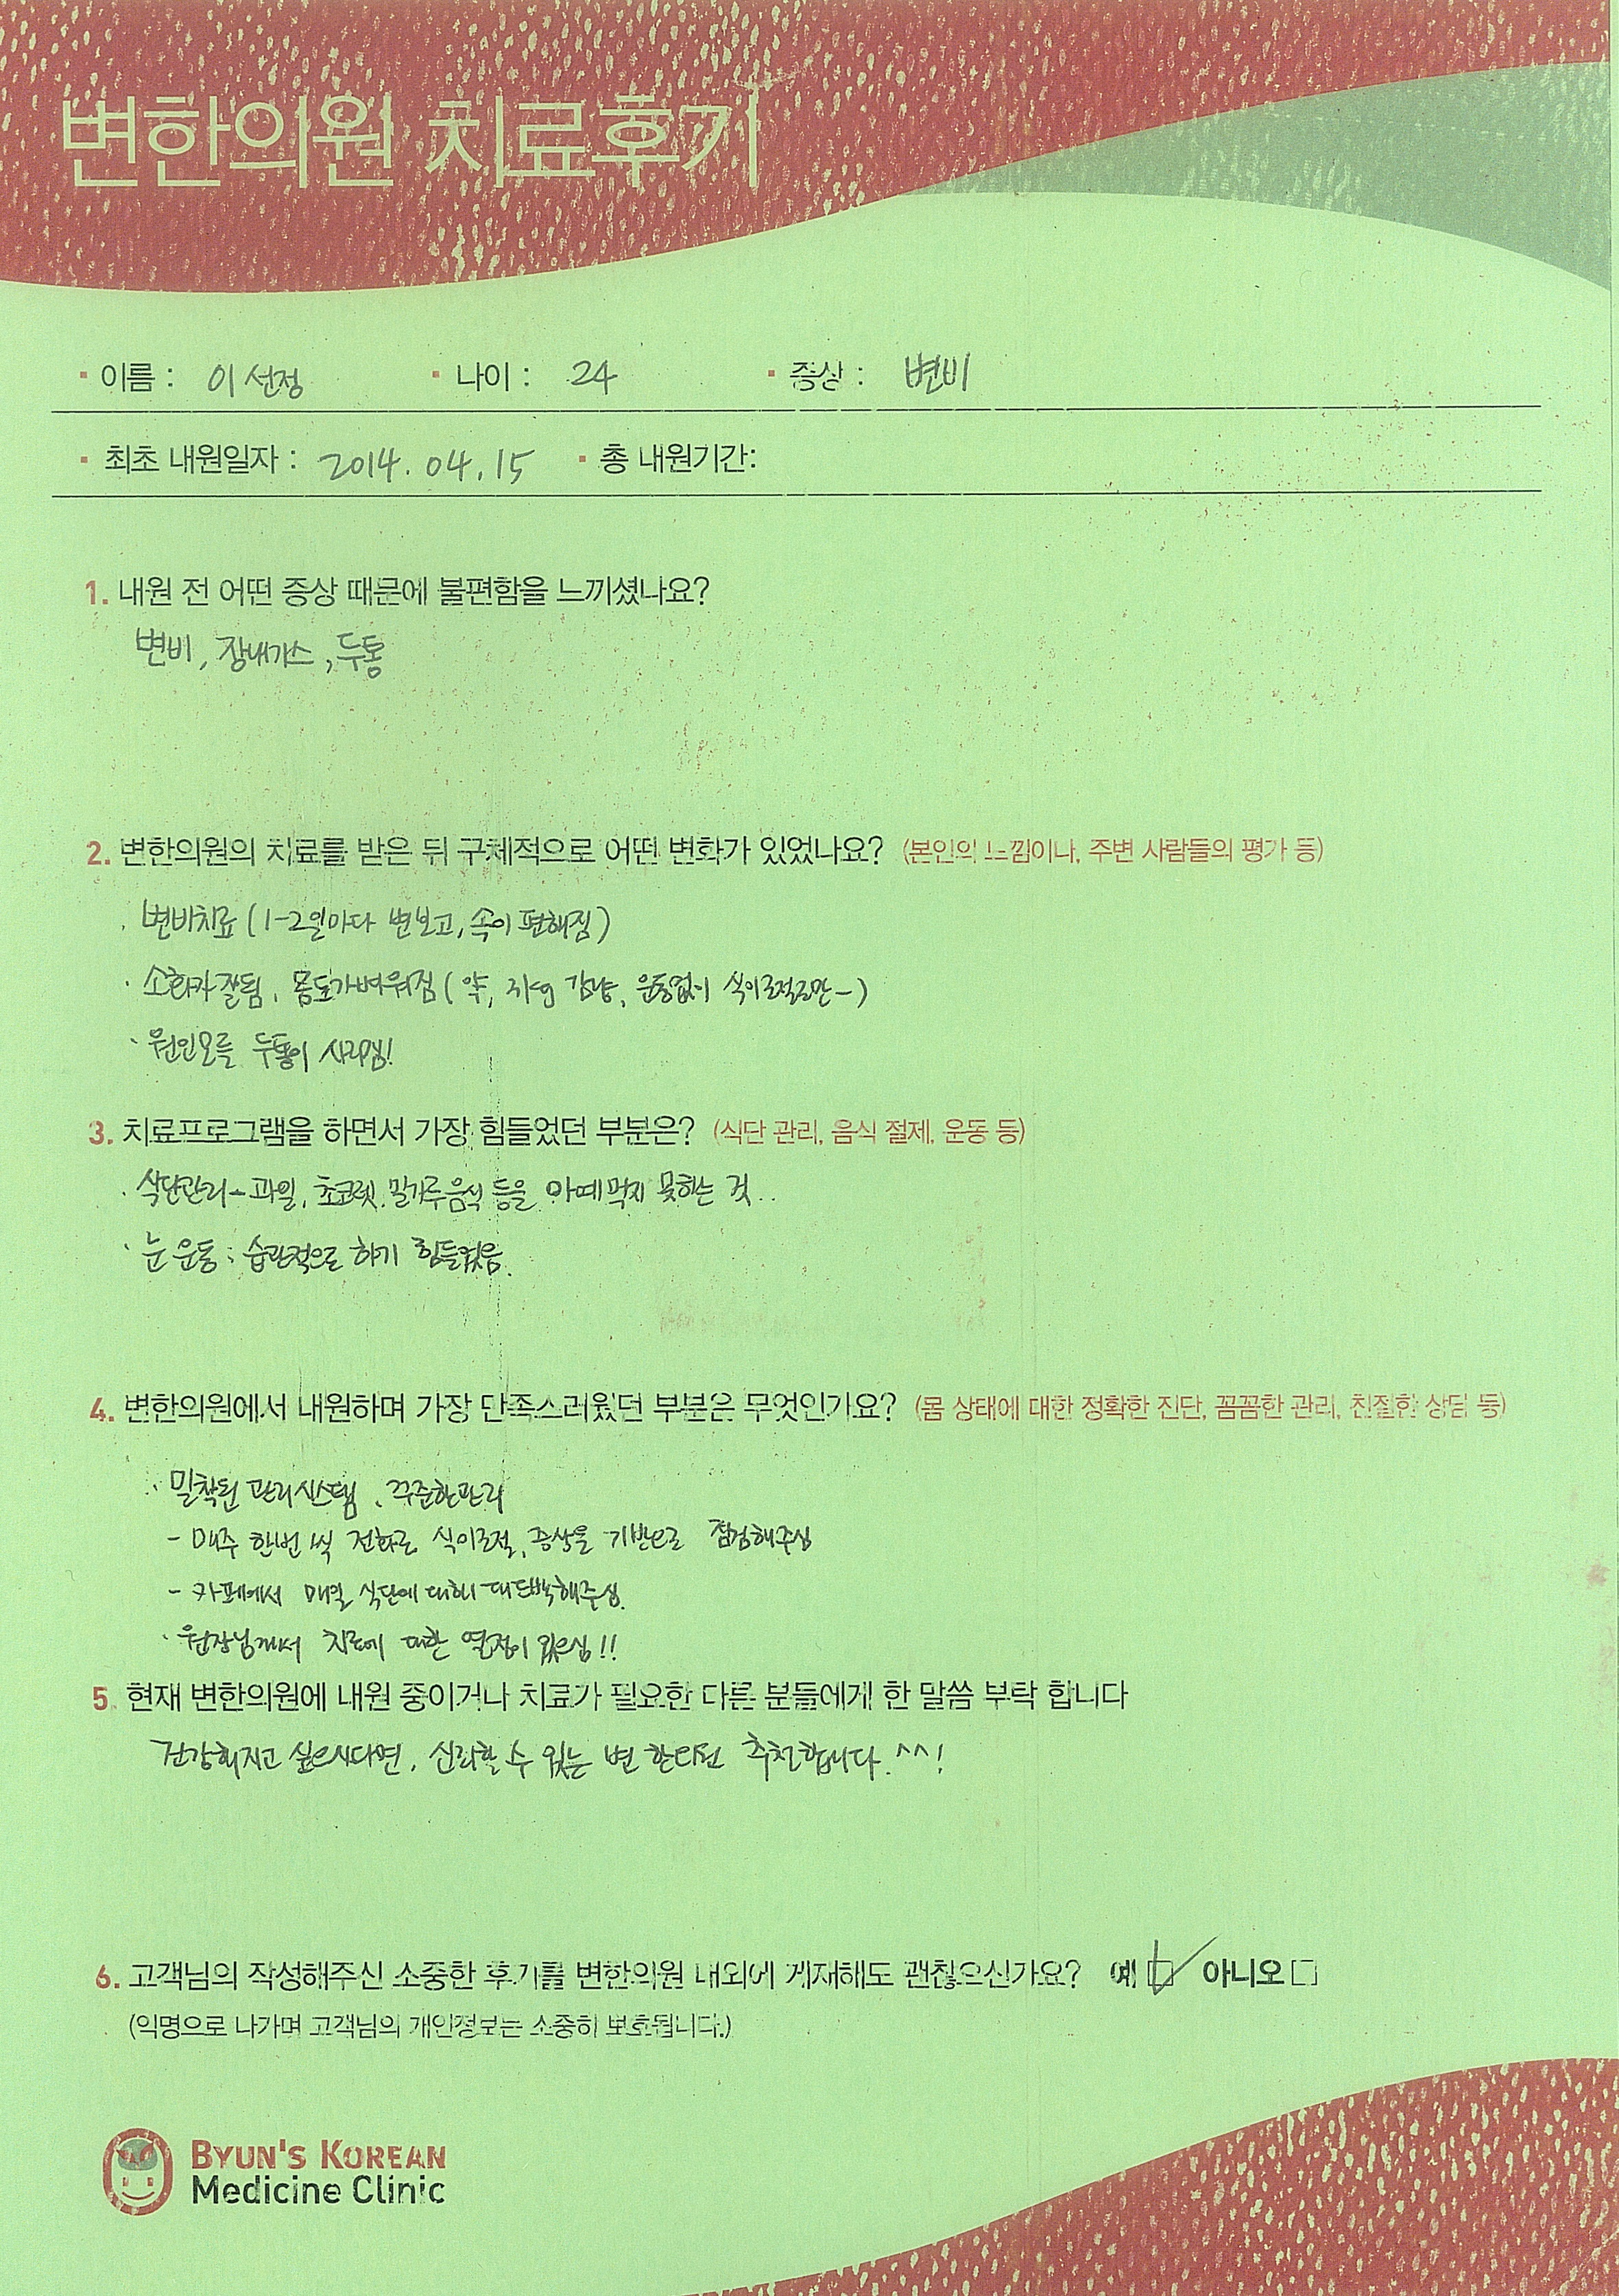 변한의원 치료후기
이름 : 이선정 나이 : 24 증상 : 변비
최초 내원일자 : 2014. 04. 15 총 내원기간:
1. 내원 전 어떤 증상 때문에 불편함을 느끼셨나요?
변비, 장내가스, 두통
2. 변한의원의 치료를 받은 뒤 구체적으로 어떤 변화가 있었나요? (본인의 느낌이나, 주변 사람들의 평가 등)
· 변비치료 (1-2일마다 변보고, 속이 편해짐)
· 소화가 잘됨, 몸도가벼워짐 (약, 3kg 감량, 운동없이 식이조절로만-)
· 원인모를 두통이 사라짐!
3. 치료프로그램을 하면서 가장 힘들었던 부분은? (식단 관리, 음식 절제, 운동 등)
· 식단관리 - 과일, 초코렛, 밀가루음식 등을 아예먹지 못하는 것..
· 눈 운동 : 습관적으로 하기 힘들었음.
4. 변한의원에서 내원하며 가장 만족스러웠던 부분은 무엇인가요? (몸 상태에 대한 정확한 진단, 꼼꼼한 관리, 친절한 상담 등)
· 밀착된 관리시스템, 꾸준한관리
- 매주 한번 씩 전화로 식이조절, 증상을 기반으로 점검해주심
- 카페에서 매일 식단에 대해 피드백해주심.
· 원장님께서 치료에 대한 열정이 있으심!!
5. 현재 변한의원에 내원 중이거나 치료가 필요한 다른 분들에게 한 말씀 부탁 합니다
건강해지고 싶으시다면, 신뢰할 수 있는 변 한의원 추천합니다.^^!
6. 고객님의 작성해주신 소중한 후기를 변한의원 내외에 게재해도 괜찮으신가요? 예 ☑ 아니오 □
(익명으로 나가며 고객님의 개인정보는 소중히 보호됩니다.)
BYUN'S KOREAN
Medicine Clinic